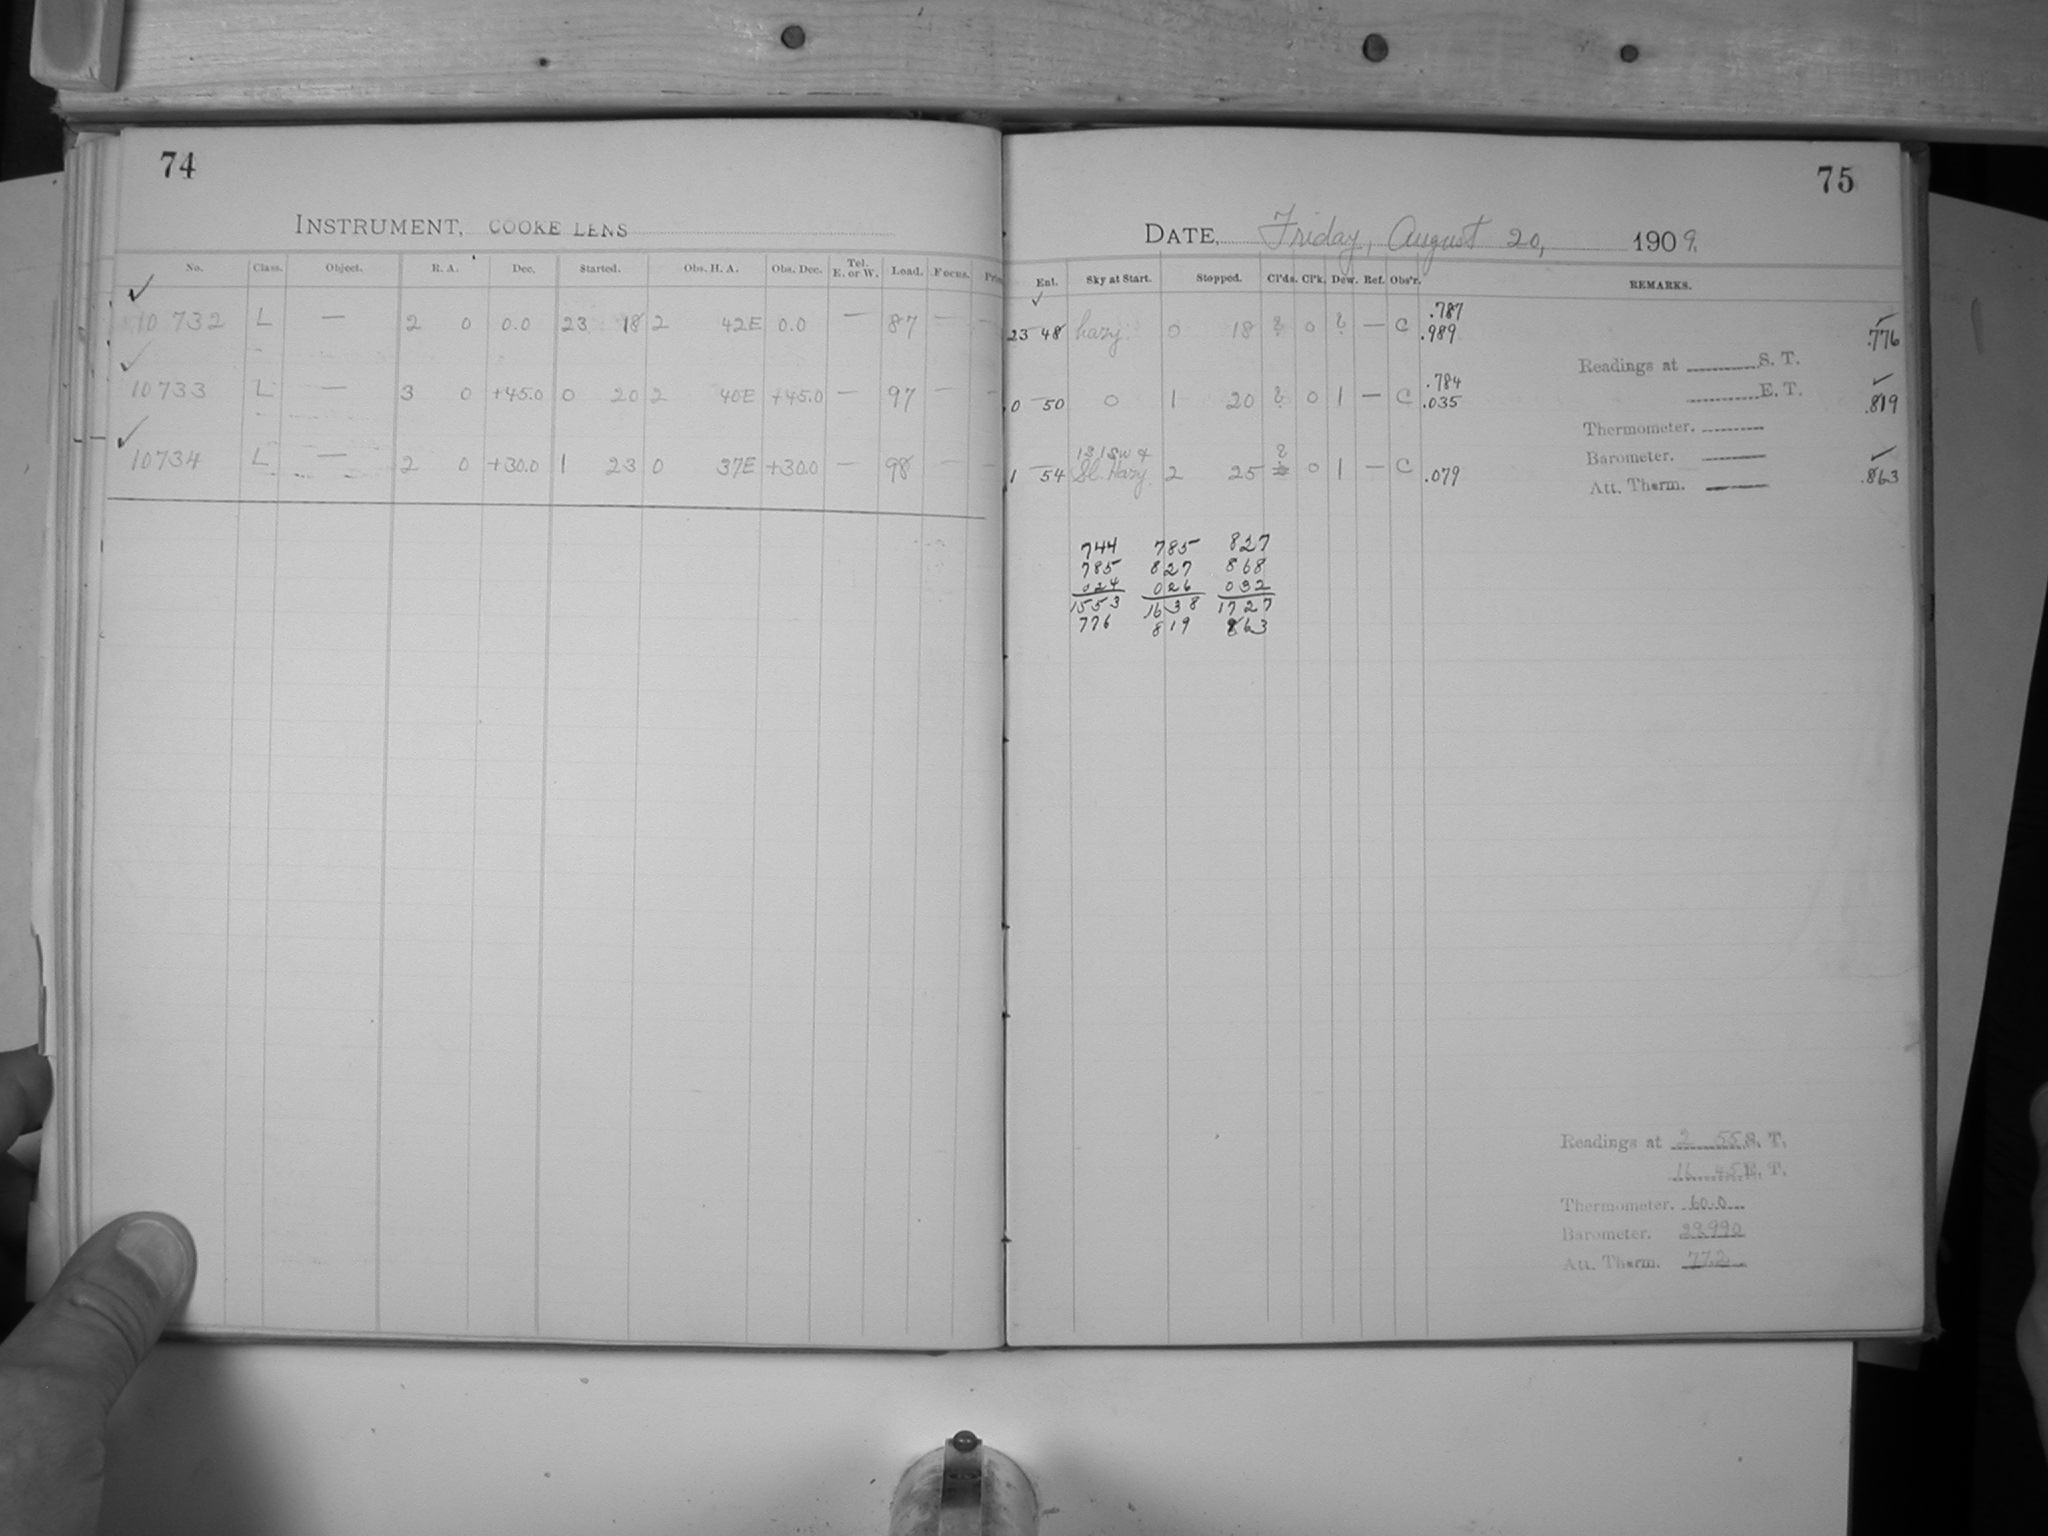 74
INSTRUMENT, COOKE LENS
No. Class. Object. R. A. Dec. Started. Obs. H. A. Obs. Dec. Tel. E. or W. Load. Focus.
✓
10732 L — 2 0 0.0 23 18 2 42E 0.0 — 87 — —
✓
10733 L — 3 0 +45.0 0 20 2 40E +45.0 — 97 — —
✓
10734 L — 2 0 +30.0 1 23 0 37E +30.0 — 98 — —
75
DATE, Friday, August 20, 1909.
Ent. Sky at Start. Stopped. Cl'ds. Cl'k. Dew. Ref. Obs'r. REMARKS.
✓
23 48 hazy. 0 18 ? 0 ? — C .787 .989 ✓ .776
Readings at S. T.
0 50 0 1 20 ? 0 1 — C .784 .035 ✓ .819
E. T.
Thermometer.
1 54 Sl. Hazy. 2 25 ? 0 1 — C .079 ✓ .863
Barometer.
Att. Therm.
744 785 827
785 827 868
024 026 032
1553 1638 1727
776 819 863
Readings at 2 55 S. T.
16 45 E. T.
Thermometer. 60.0
Barometer. 29.990
Att. Therm. 77.2